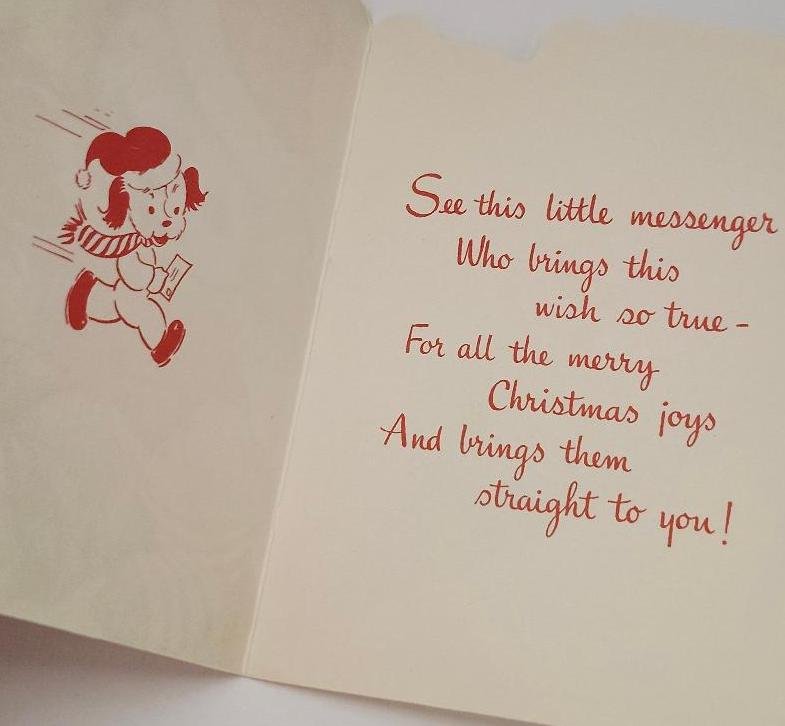 See this little messenger
Who brings this
wish so true -
For all the merry
Christmas joys
And brings them
straight to you!